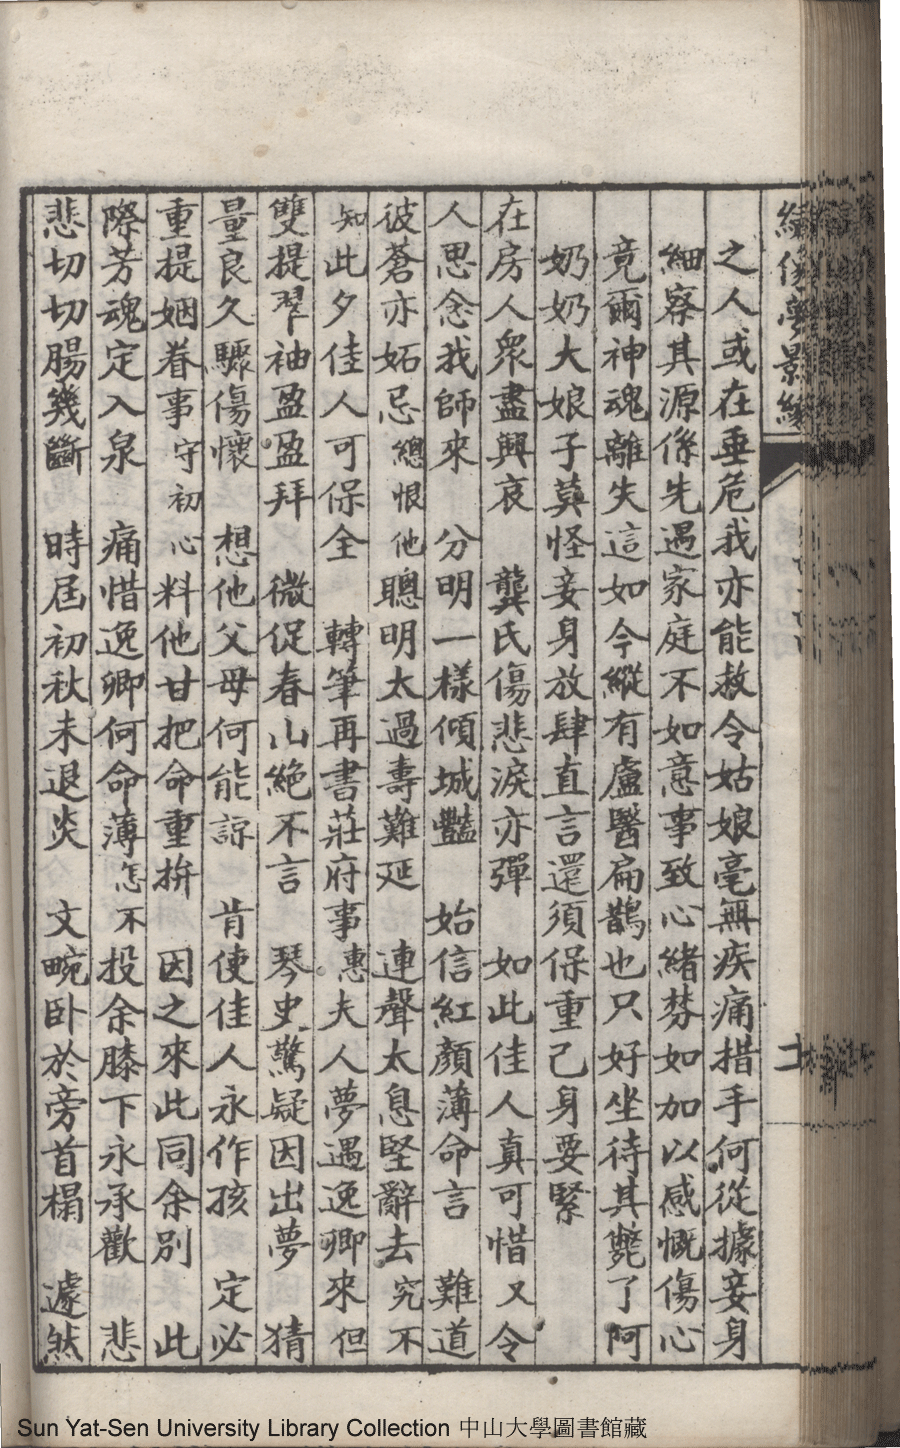 之人或在垂危我亦能救令姑娘毫無疾痛措手何從據妾身
細察其源係先遇家庭不如意事致心緒棼如加以感慨傷心
竟爾神魂離失這如今縱有盧醫扁鵲也只好坐待其斃了阿
奶奶大娘子莫怪妾身放肆直言還須保重己身要緊
在房人眾盡興哀　龔氏傷悲淚亦彈　如此佳人真可惜又令
人思念我師來　分明一樣傾城豔　始信紅顏薄命言　難道
彼蒼亦妬忌總恨他聰明太過壽難延　連聲太息堅辭去究不
知此夕佳人可保全　轉筆再書莊府事惠夫人夢遇逸卿來但
雙提翠袖盈盈拜　微促春山絕不言　琴史驚疑因出夢　猜
量良久驟傷懷　想他父母何能諒　肯使佳人永作孩　定必
重提姻眷事守初心料他甘把命重拚　因之來此同余別　此
際芳魂定入泉　痛惜逸卿何命薄怎不投余膝下永承歡　悲
悲切切腸幾斷　時屆初秋未退炎　文畹卧於旁首榻　遽然
Sun Yat-Sen University Library Collection 中山大學圖書館藏